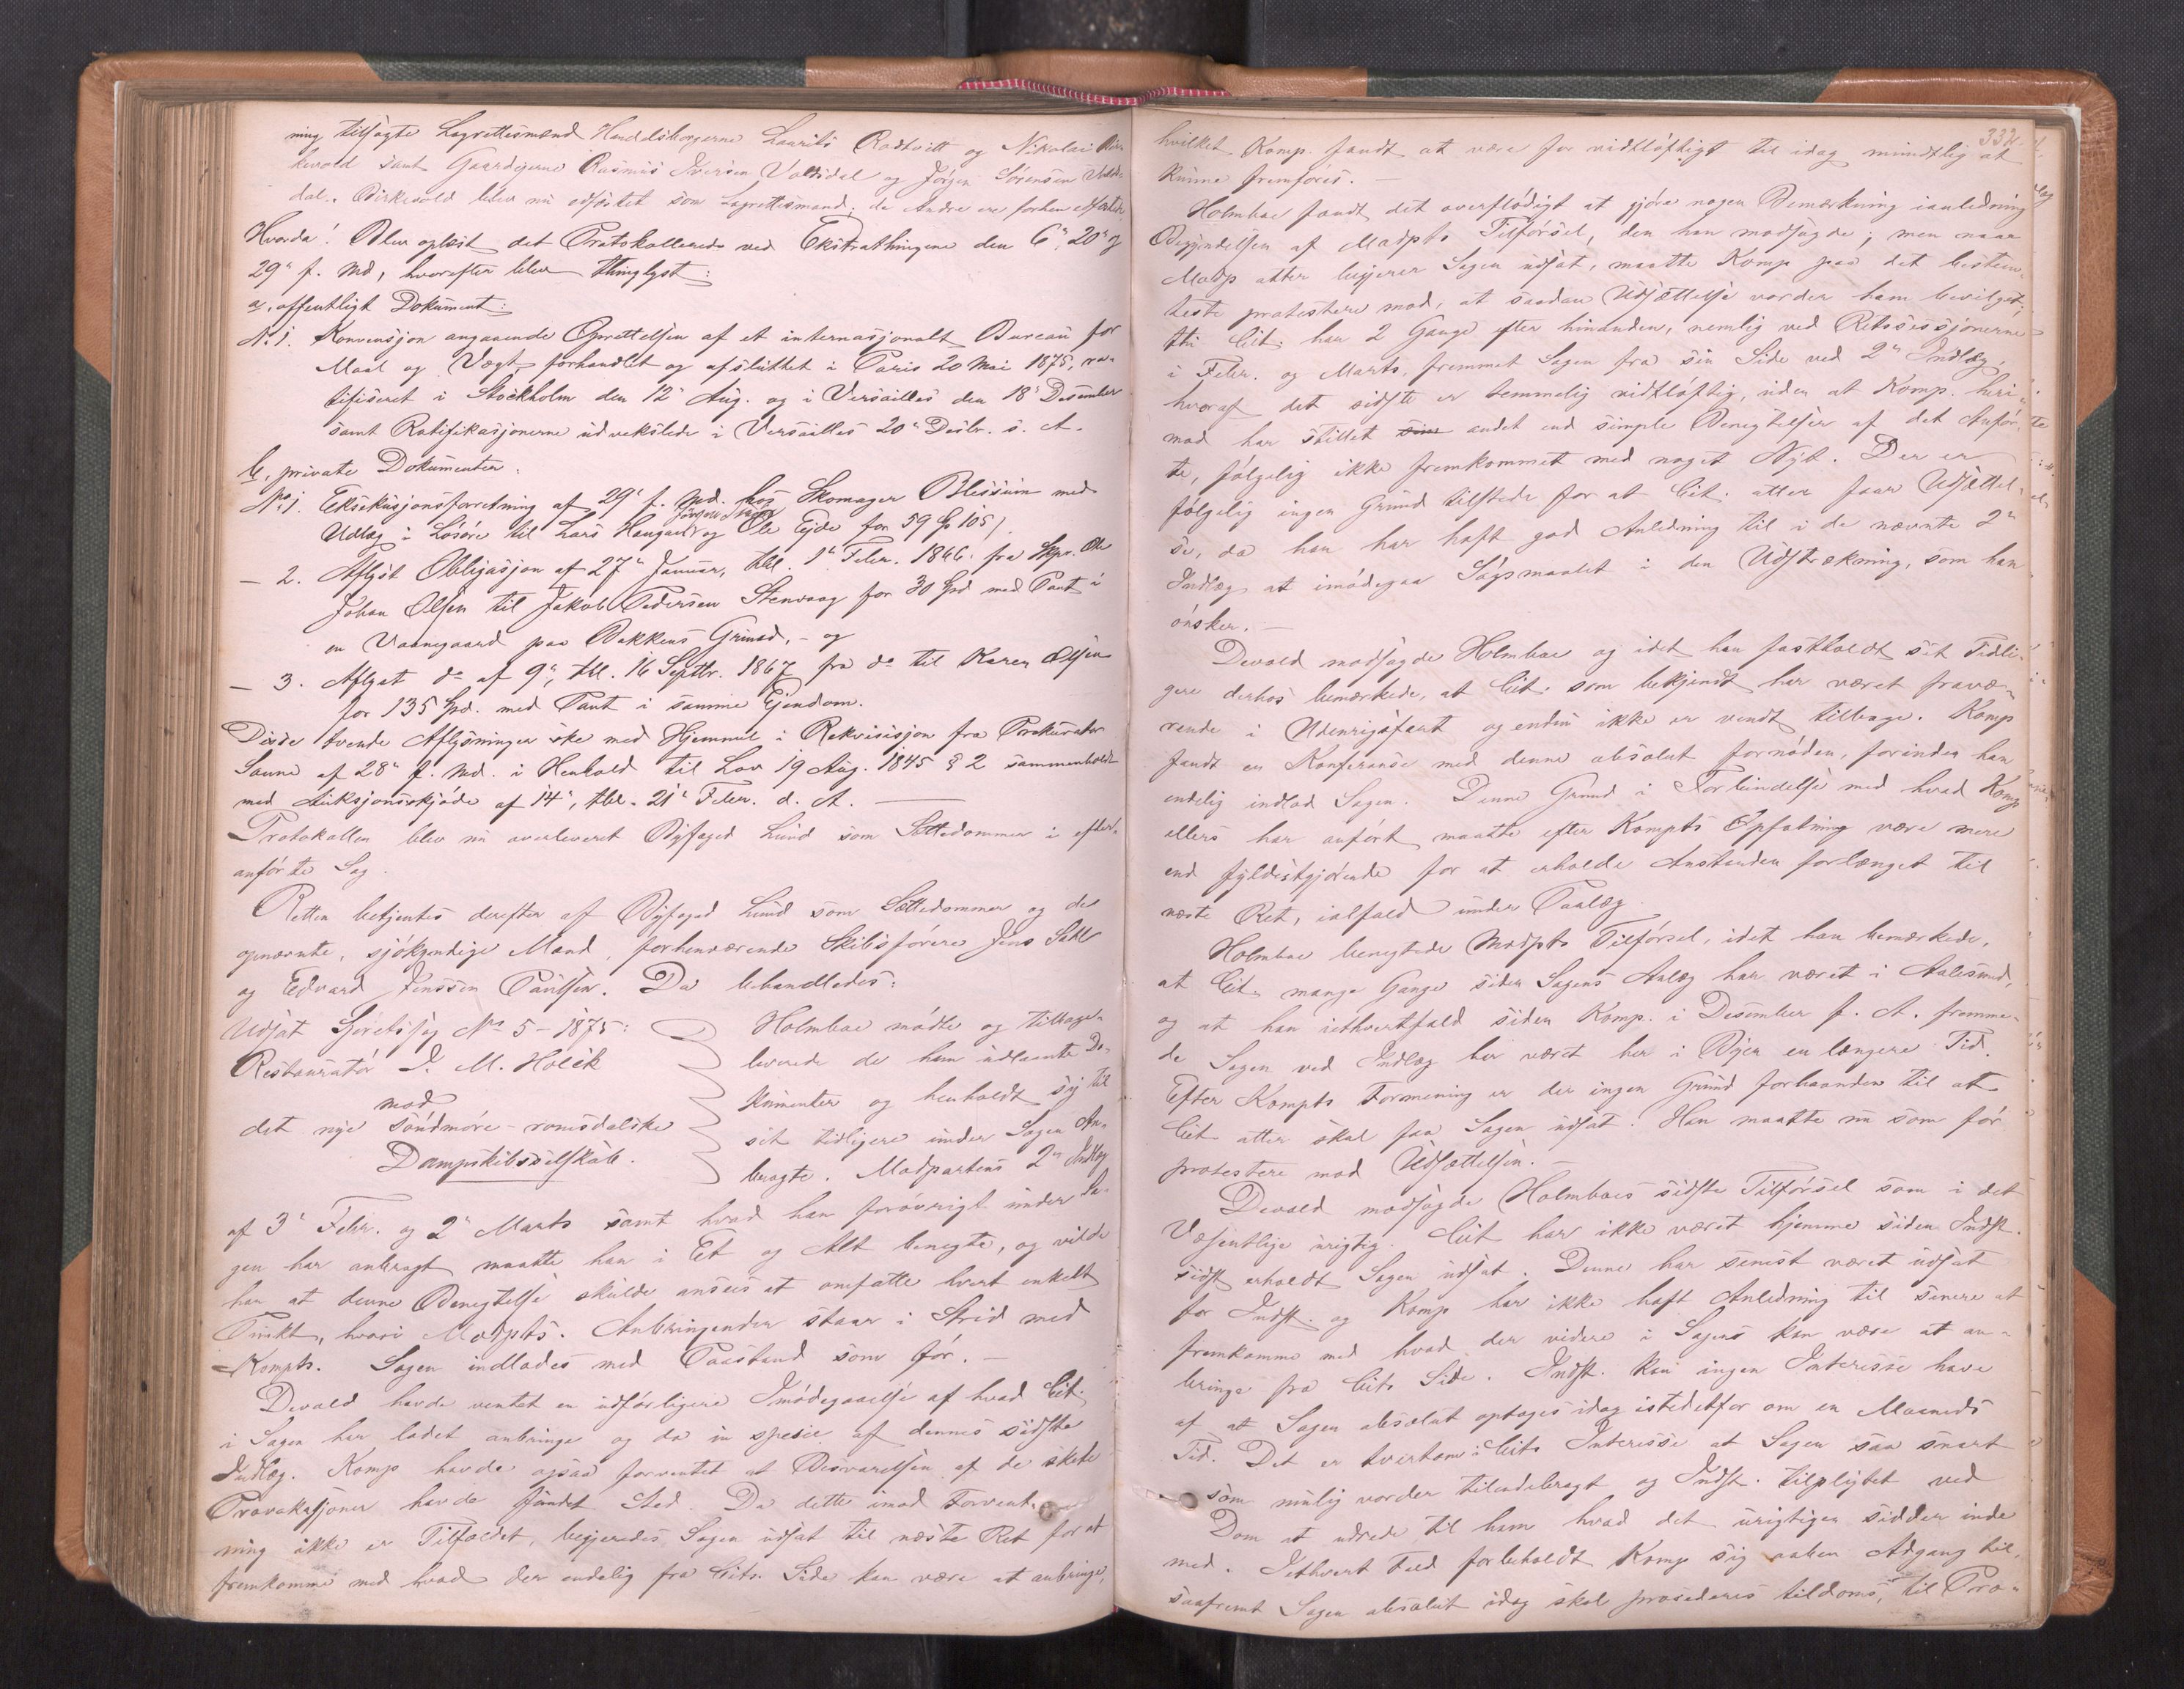 ning tilsagte Lagrettesmænd Handelsborgerne Laurits Rodtvitt og Nikolai Bir-
kevold samt Gaardejerne Rasmus Iversen Valdsdal og Jörgen Sörensen
dal. Birkevold blev nu edfæstet som Lagrettesmand; de Andre ere forhen edfæstede
Hvorda! Blev oplæst det Protokollerede ved Ekstrathingene den 6te, 20de og
29de f. Md, hvorefter blev thinglyst:
a, offentligt Dokument:
No 1. Konvensjon angaaende Oprettelsen af et internasjonalt Bureau for
Maal og Vægt, forhandlet og afsluttet i Paris 20 Mai 1875, ra-
tifiseret i Stockholm den 12te Aug. og i Versailles den 18de Desember
samt Ratifikasjonerne udvekslede i Versailles 20de Desbr. s. A.
b, private Dokumenter:
No 1. Eksekusjonsforretning af 29de f. Md. hos Skomager Blessum med
Udlæg i Lösöre til Lars Haugard og Ole Eide for 59 Sp 105 /.
- 2. Aflyst Obligasjon af 27de Januar, tbl. 1te Febr. 1866 fra Skpr. Ole
Johan Olsen til Jakob Pedersen Stenvaag for 30 Spd med Pant i
en Vaanegaard paa Bakkens Grund, - og
- 3. Aflyst do af 9de, tbl. 16 Septbr. 1867 fra do til Karen Olsen
for 135 Spd. med Pant i samme Ejendom.
Disse tvende Aflysninger ske med Hjemmel i Rekvisisjon fra Prokurator
Saune af 28de f. Md. i Henhold til Lov 19 Aug. 1845 § 2 sammenholdt
med Auksjonsskjöde af 14de, tbl. 21de Febr. d. A.
Protokollen blev nu overleveret Byfoged Lund som Settedommer i efter-
anförte Sag.
Retten betjentes derefter af Byfoged Lund som Settedommer og de
opnævnte, sjökyndige Mænd, forhenværende Skibsförere Jens
og Edvard Jenssen Paulsen. Da behandledes:
Udsat Sjöretssag No 5 - 1875:
Restauratör J. M. Holck
mod
det nye söndmöre-romsdalske
Dampskibsselskab.
Holmboe mödte og tilbage-
leverede de ham udlaante Do-
kumenter og henholdt sig til
sit tidligere under Sagen An-
bragte. Modpartens 2de Indlæg
af 3de Febr. og 2de Marts samt hvad han forövrigt under Sa-
gen har anbragt maatte han i Et og Alt benegte, og vilde
han at denne Benegtelse skulde ansees at omfatte hvert enkelt
Punkt, hvori Modpts. Anbringender staar i Strid med
Kompts. Sagen indlodes med Paastand som för. -
Devold havde ventet en udförligere Imödegaaelse af hvad Cit.
i Sagen har ladet anbringe og da in spesie af dennes sidste
Indlæg. Komp havde ogsaa forventet at Besvarelsen af de skete
Provokasjoner havde fundet Sted. Da dette imod Forvent-
ning ikke er Tilfældet, begjeredes Sagen udsat til næste Ret for at
fremkomme med hvad der endelig fra Cits. Side kan være at anbringe,
332.
hvilket Komp. fandt at være for vidtlöftigt til idag mundtlig at
kunne fremföres. -
Holmboe fandt det overflödigt at gjöre nogen Bemærkning ianledning
Begyndelsen af Modpts Tilförsel, den han modsagde; men naar
Modp atter begjerer Sagen udsat, maatte Komp paa det bestem-
teste protestere mod, at saadan Udsættelse vorder ham bevilget;
thi Cit. har 2 Gange efter hinanden, nemlig ved Retssessjonerne
i Febr. og Marts, fremmet Sagen fra sin Side ved 2de Indlæg,
hvoraf det sidste er temmelig vidtlöftig, uden at Komp. heri-
mod har stillet andet end simple Benegtelser af det Anför-
te, fölgelig ikke fremkommet med noget Nyt. Der er
fölgelig ingen Grund tilstede for at Cit. atter faar Udsættel-
se, da han har haft god Anledning til i de nævnte 2de
Indlæg at imödegaa Sögsmaalet i den Udstrækning, som han
önsker. -
Devold modsagde Holmboe og idet han fastholdt sit Tidli-
gere derhos bemærkede, at Cit. som bekjendt har været fravæ-
rende i Udenrigsfart og endnu ikke er vendt tilbage. Komp
fandt en Konferanse med denne absolut fornöden, forinden han
endelig indlod Sagen. Denne Grund i Forbindelse med hvad Komp
ellers har anfört maatte efter Kompts Opfatning være mere
end fyldestgjörende for at erholde Anstanden forlænget til
næste Ret, ialfald under Paalæg.
Holmboe benegtede Modpts Tilförsel, idet han bemærkede,
at Cit. mange Gange siden Sagens Anlæg har været i Aalesund,
og at han iethvertfald siden Komp. i Desember f. A. fremme-
de Sagen ved Indlæg har været her i Byen en længere Tid.
Efter Kompts Formening er der ingen Grund forhaanden til at
Cit atter skal faa Sagen udsat. Han maatte nu som för
protestere mod Udsættelsen. -
Devold modsagde Holmboes sidste Tilförsel som i det
Væsentlige urigtig. Cit har ikke været hjemme siden Indst.
sidst erholdt Sagen udsat. Denne har senest været udsat
for Indst. og Komp har ikke haft Anledning til senere at
fremkomme med hvad der videre i Sagens kan være at an-
bringe fra Cits Side. Indst. kan ingen Interesse have
af at Sagen absolut optages idag istedetfor om en Maaneds
Tid. Det er tvertom i Cits Interesse at Sagen saa snart
som mulig vorder tilendebragt og Indst. tilpligtet ved
Dom at udrede til ham hvad det urigtigen sidder inde
med. Iethvert Fald forbeholdt Komp sig aaben Adgang til,
saafremt Sagen absolut idag skal prosederes tildoms, til Pro-